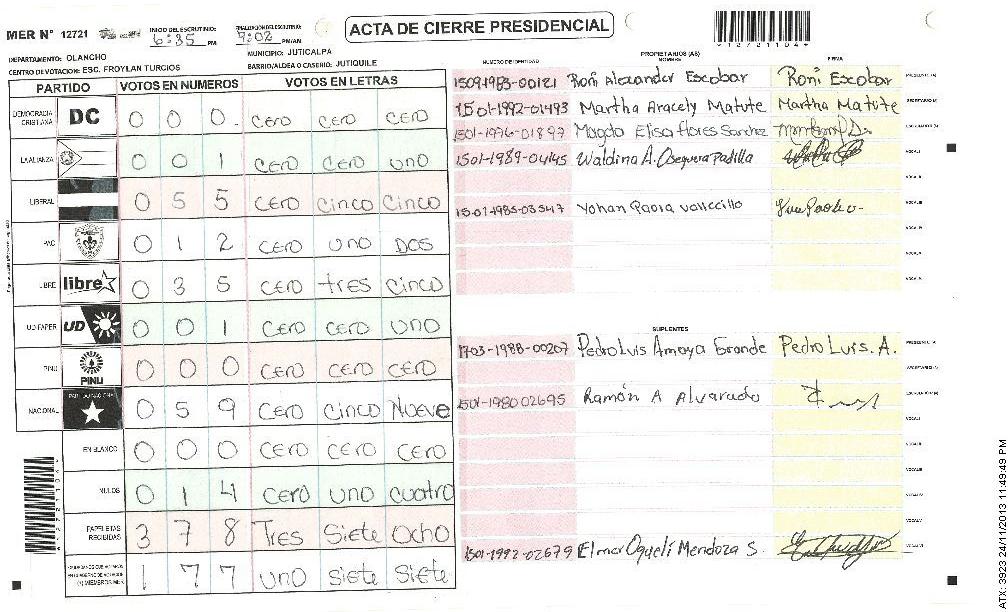 MER N° 12721
INICIO DEL ESCRUTINIO: 6:35 PM
FINALIZACIÓN DEL ESCRUTINIO: 9:02 PM/AM
ACTA DE CIERRE PRESIDENCIAL
DEPARTAMENTO: OLANCHO
MUNICIPIO: JUTICALPA
CENTRO DE VOTACION: ESC. FROYLAN TURCIOS
BARRIO/ALDEA O CASERIO: JUTIQUILE
PARTIDO VOTOS EN NUMEROS VOTOS EN LETRAS
DEMOCRACIA CRISTIANA DC 0 0 0 CERO CERO CERO
LA ALIANZA 0 0 1 CERO CERO UNO
LIBERAL 0 5 5 CERO CINCO CINCO
PAC 0 1 2 CERO UNO DOS
LIBRE libre 0 3 5 CERO TRES CINCO
UD FAPER UD 0 0 1 CERO CERO UNO
PINU PINU 0 0 0 CERO CERO CERO
NACIONAL 0 5 9 CERO CINCO NUEVE
EN BLANCO 0 0 0 CERO CERO CERO
NULOS 0 1 4 CERO UNO CUATRO
PAPELETAS RECIBIDAS 3 7 8 TRES SIETE OCHO
1 7 7 UNO SIETE SIETE
PROPIETARIOS (AS)
NUMERO DE IDENTIDAD NOMBRE FIRMA
1509-1983-00121 Roni Alexander Escobar Roni Escobar PRESIDENTE (A)
1501-1992-01493 Martha Aracely Matute Martha Matute SECRETARIO (A)
1501-1976-01897 Magda Elisa flores Sanchez ESCRUTADOR (A)
1501-1989-04145 Waldina A. Oseguera Padilla VOCAL I
VOCAL II
1501-1985-03547 Yohan Paola Vallecillo VOCAL III
SUPLENTES
1703-1988-00207 Pedro Luis Amaya Grande Pedro Luis. A. PRESIDENTE (A)
SECRETARIO (A)
1501-1980 02695 Ramón A Alvarado ESCRUTADOR (A)
1501-1992-02679 Elmer Oquelí Mendoza S.
ATX: 3923 24/11/2013 11:49:49 PM